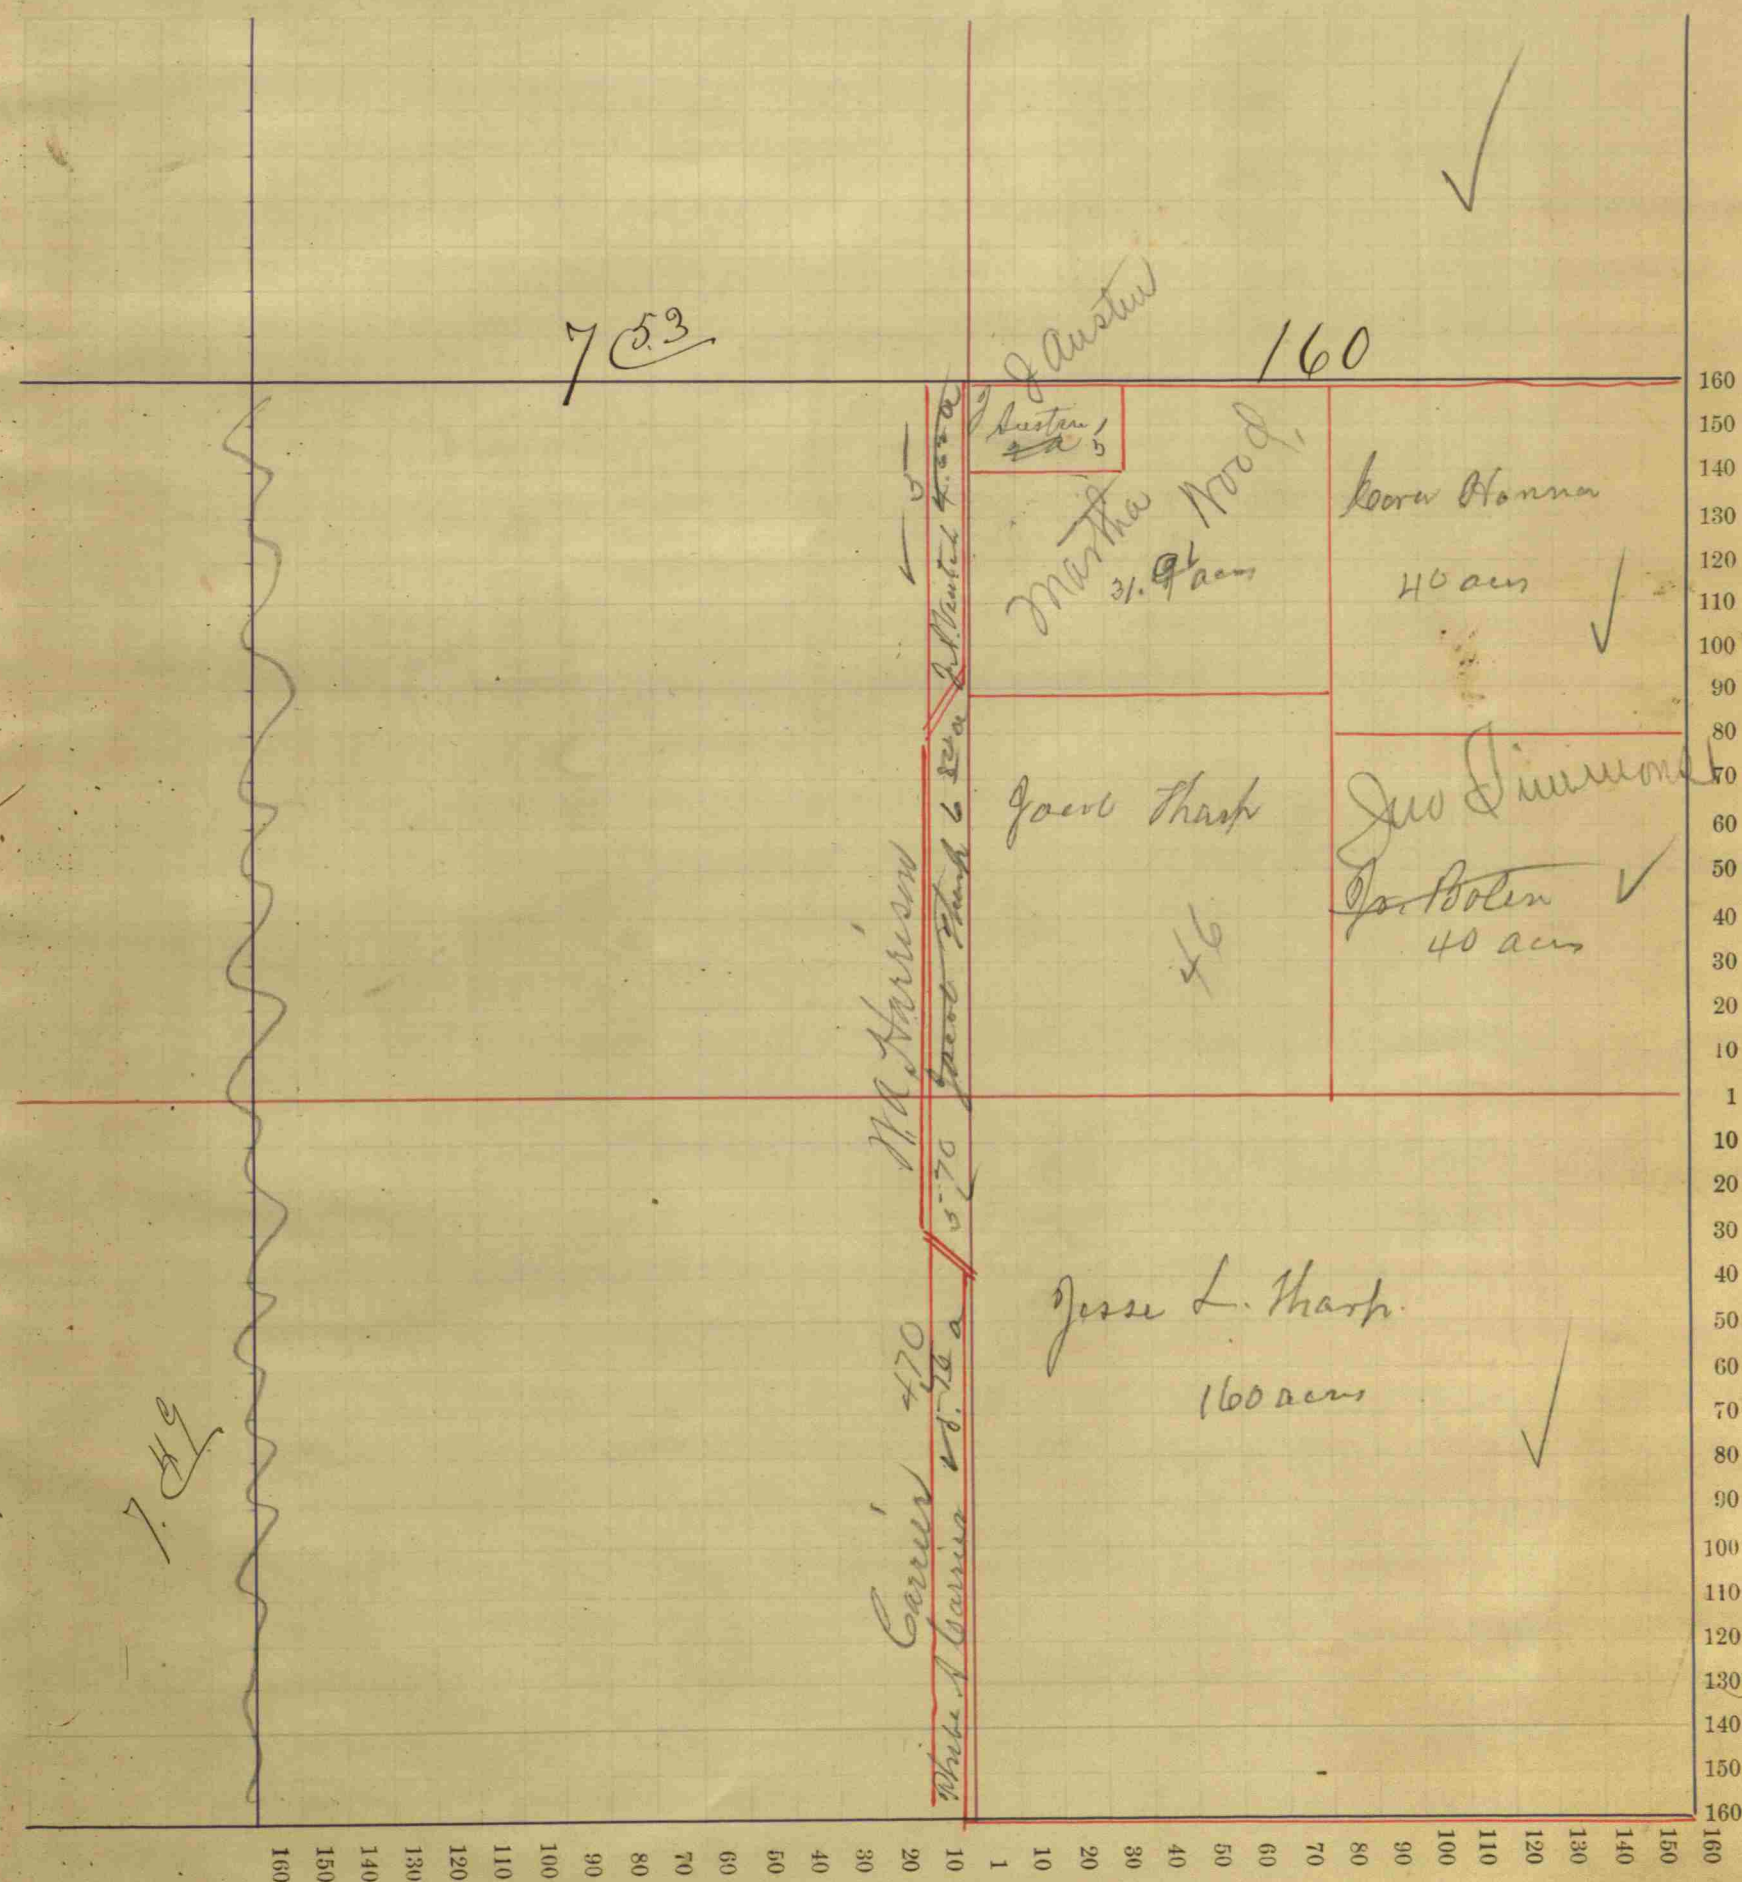 7 53
160
J Austin
J Austin
5
Martha Wood
31. acres
Cora Hanna
40 acrs
5
W.A. Harrison
Jacob Tharp 6
5 70
Jacob Tharp
46
Jno Simmons
Jn. Bolen
40 acrs
Jesse L. Tharp.
160 acres
Carrier 470
White & Carrier
7. 49
160
150
140
130
120
110
100
90
80
70
60
50
40
30
20
10
1
10
20
30
40
50
60
70
80
90
100
110
120
130
140
150
160
160 150 140 130 120 110 100 90 80 70 60 50 40 30 20 10 1 10 20 30 40 50 60 70 80 90 100 110 120 130 140 150 160